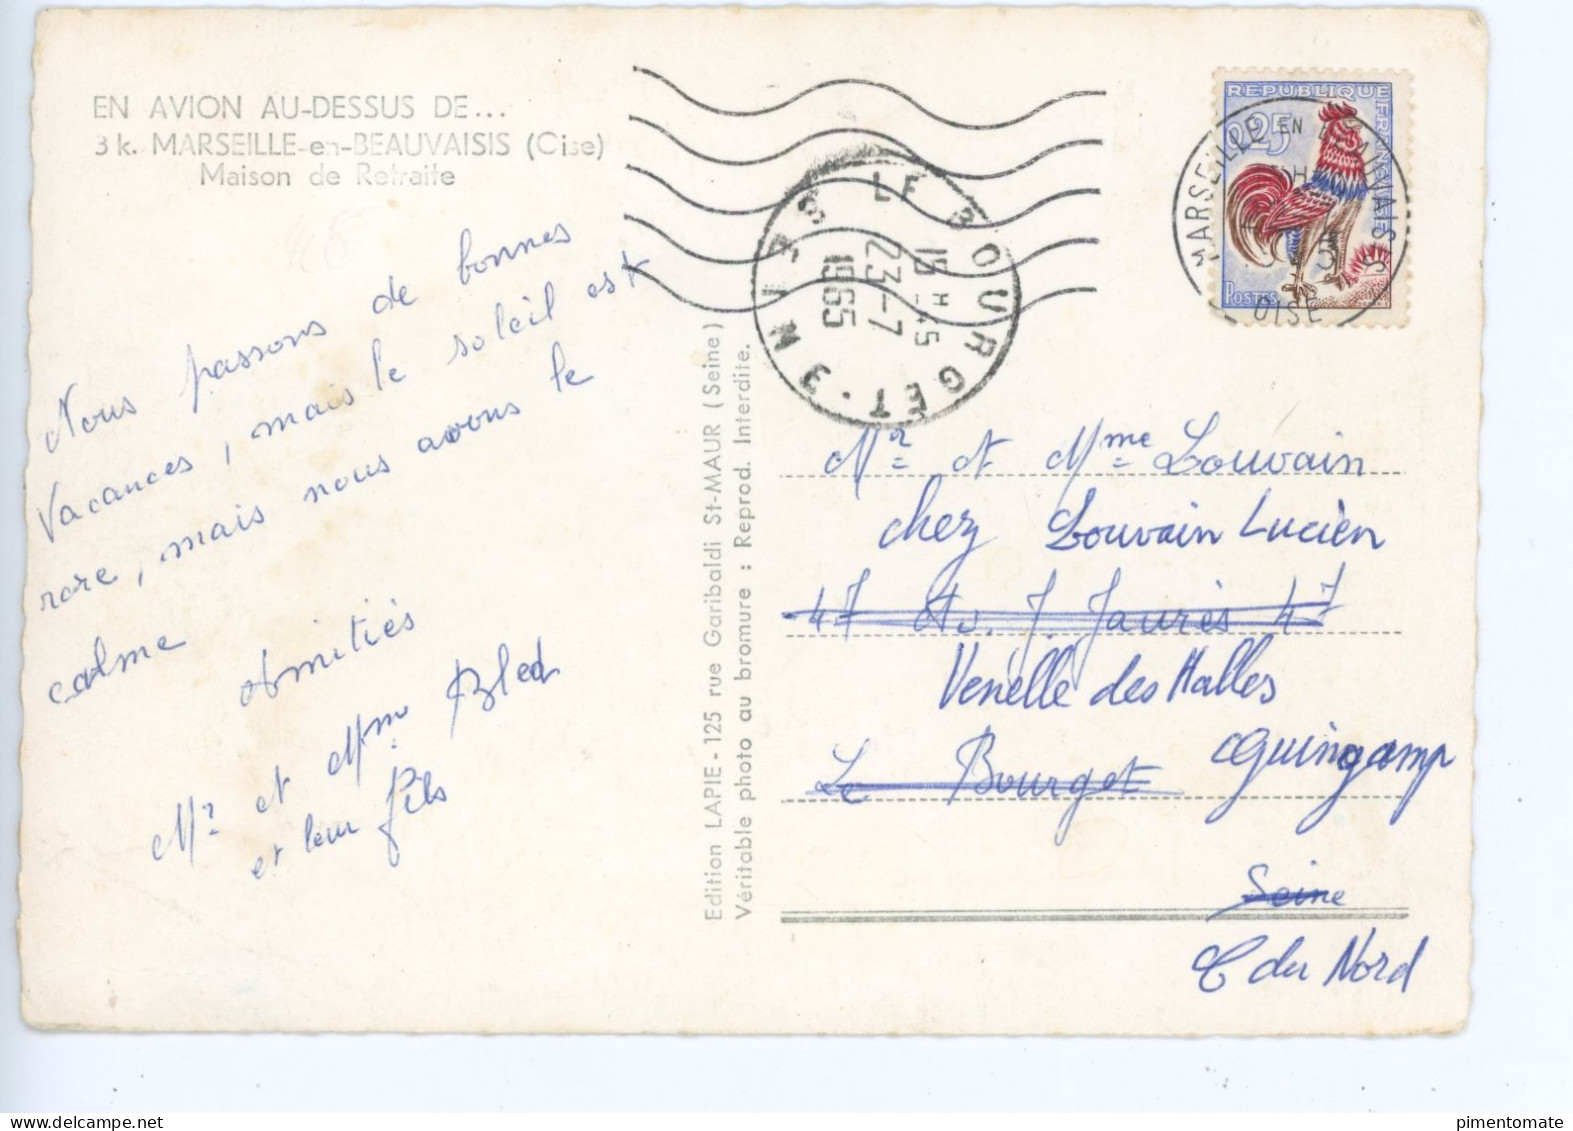 EN AVION AU-DESSUS DE...
3 k. MARSEILLE-en-BEAUVAISIS (Oise)
Maison de Retraite
Nous passons de bonnes
Vacances, mais le soleil est
rare, mais nous avons le
calme
Amitiés
Mr et Mme Bled
et leur fils
Edition LAPIE - 125 rue Garibaldi St-MAUR (Seine)
Véritable photo au bromure : Reprod. Interdite.
LE BOURGET · SEINE
15 H 45
23-7
1965
REPUBLIQUE FRANÇAISE
0,25
POSTES
MARSEILLE EN BEAUVAISIS
OISE
Mr et Mme Louvain
chez Louvain Lucien
47 Av. J. Jaurès 47
Venelle des Halles
Guingamp
Le Bourget
Seine
C du Nord
pimentomate